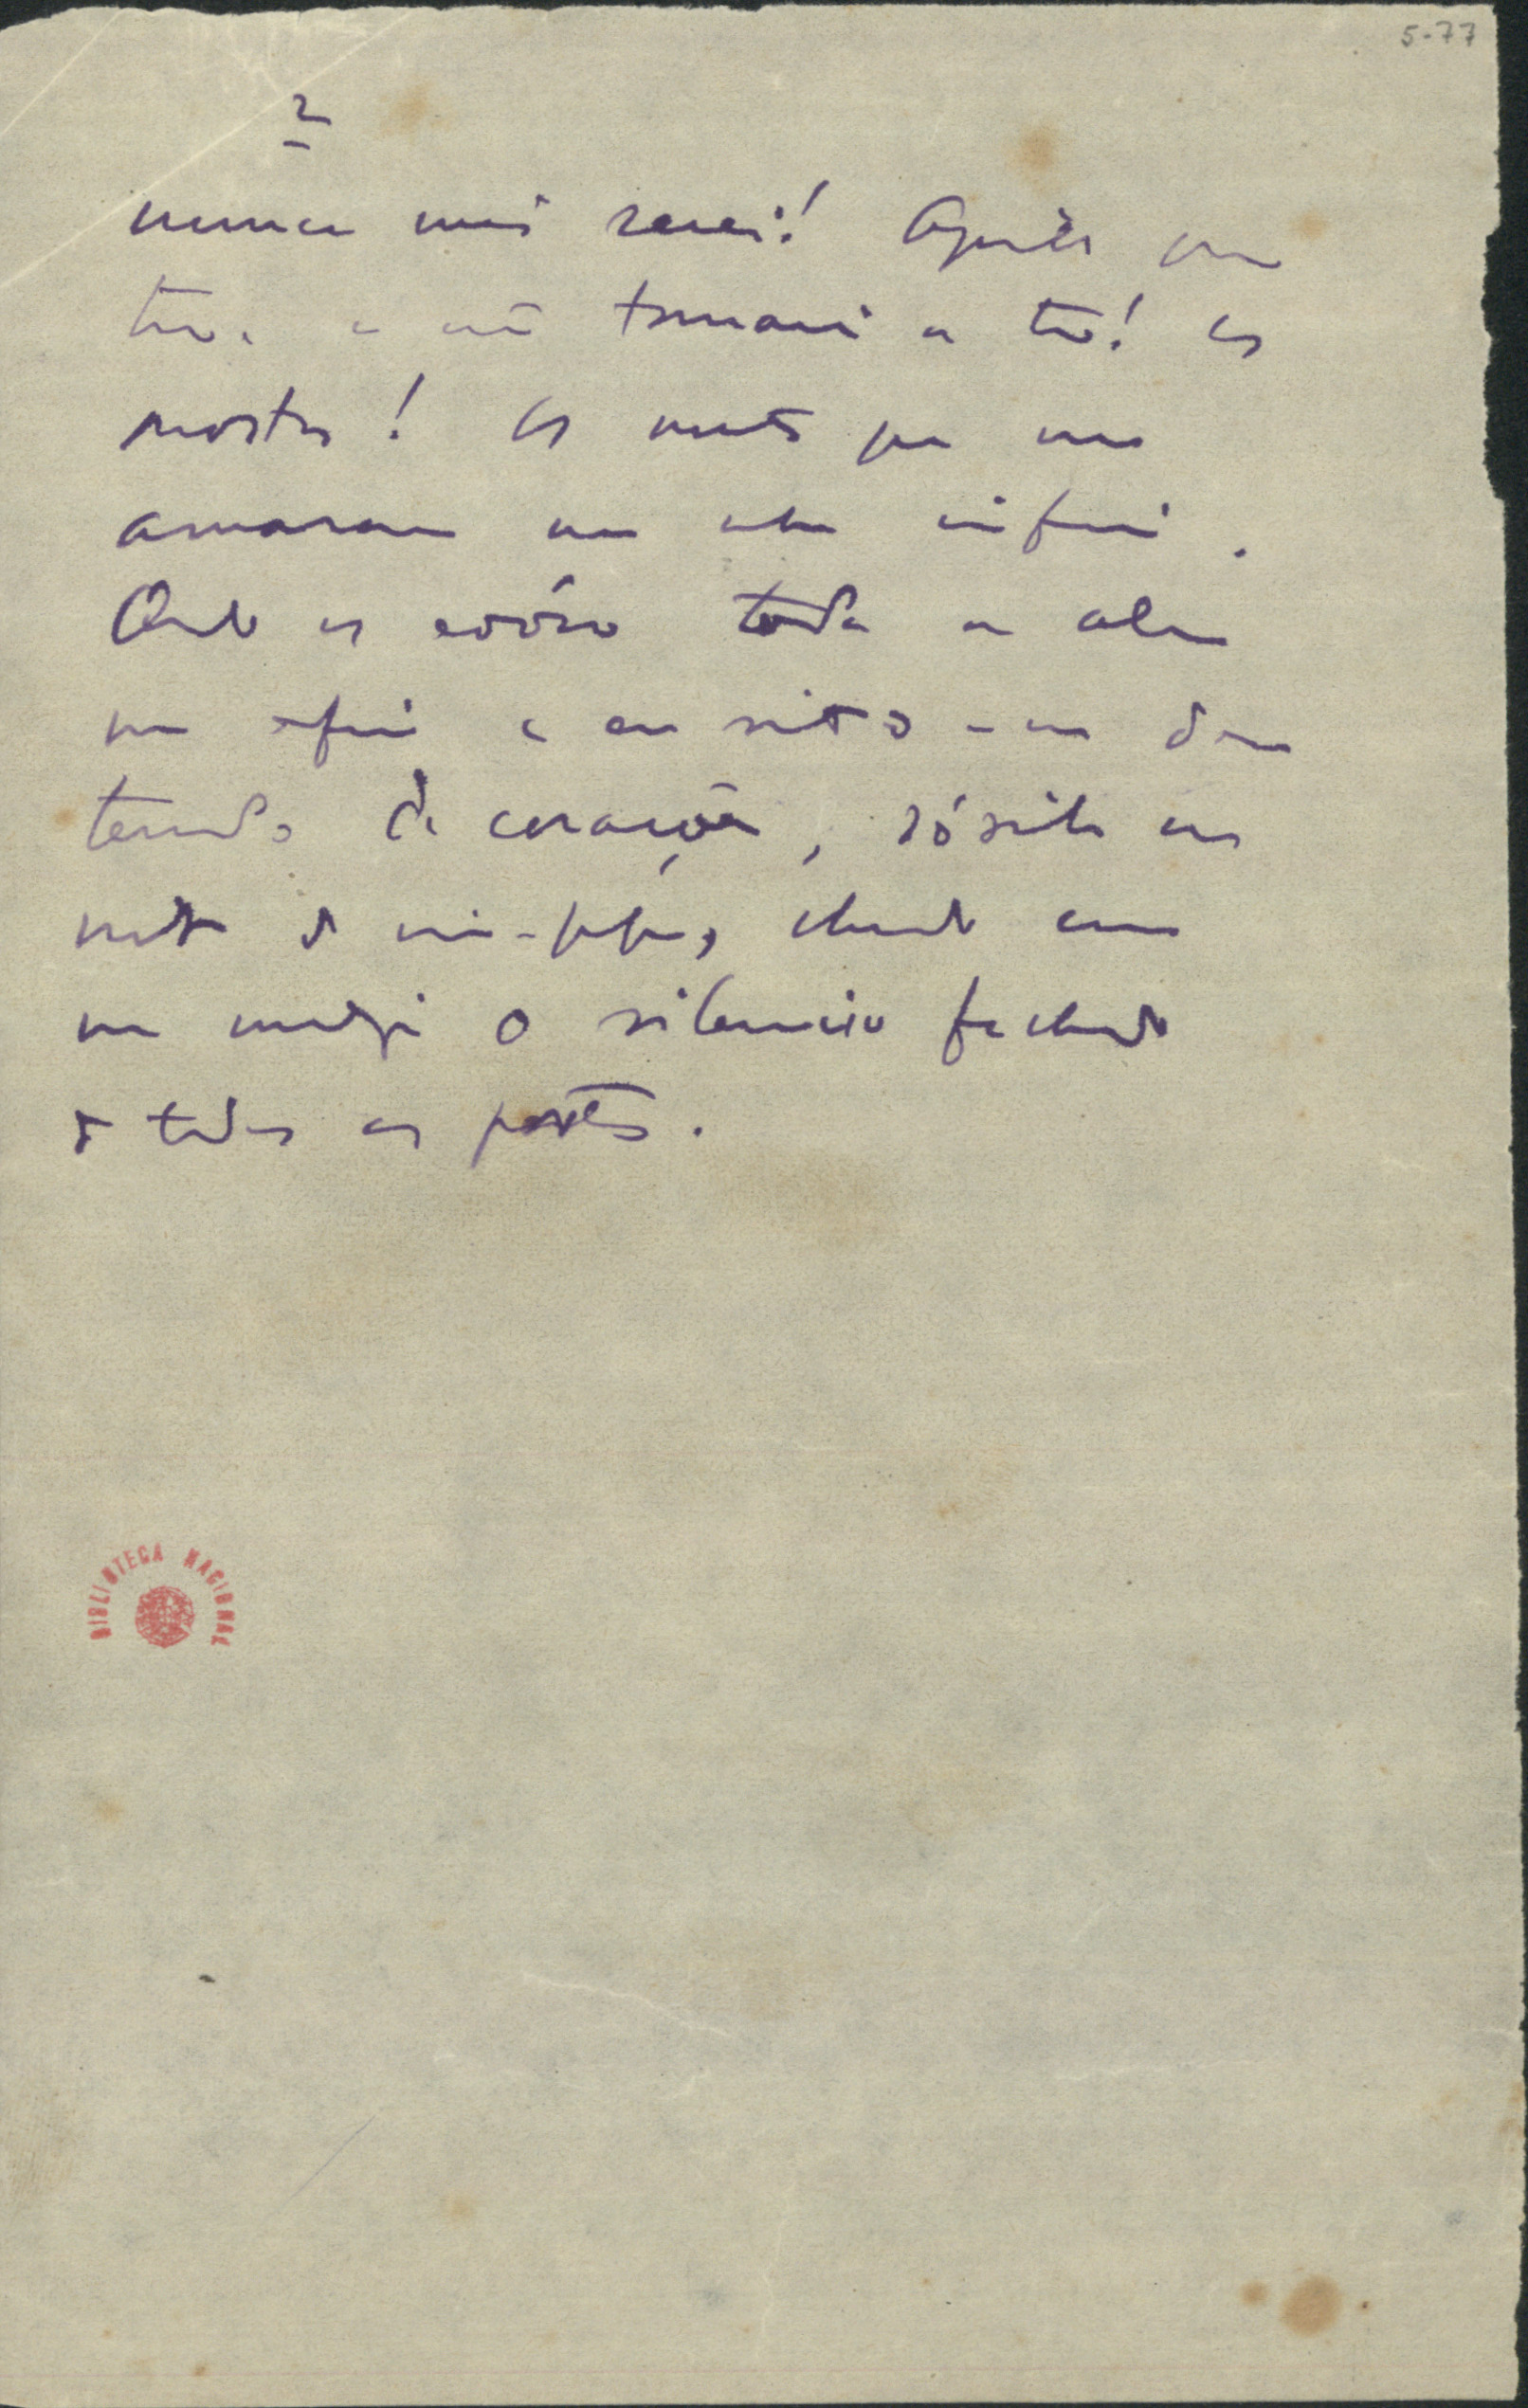 5-77
2
nunca mais serei! Aquêles que
tive e não tornarei a ter! Os
mortos! Os mortos que me
amaram na minha infancia.
Quando os evóco toda a alma
me esfria e eu sinto-me des
terrado de corações, sósinho na
noite de mim-proprio, chorando como
um mendigo o silencio fechado
de todas as portas.
BIBLIOTECA NACIONAL